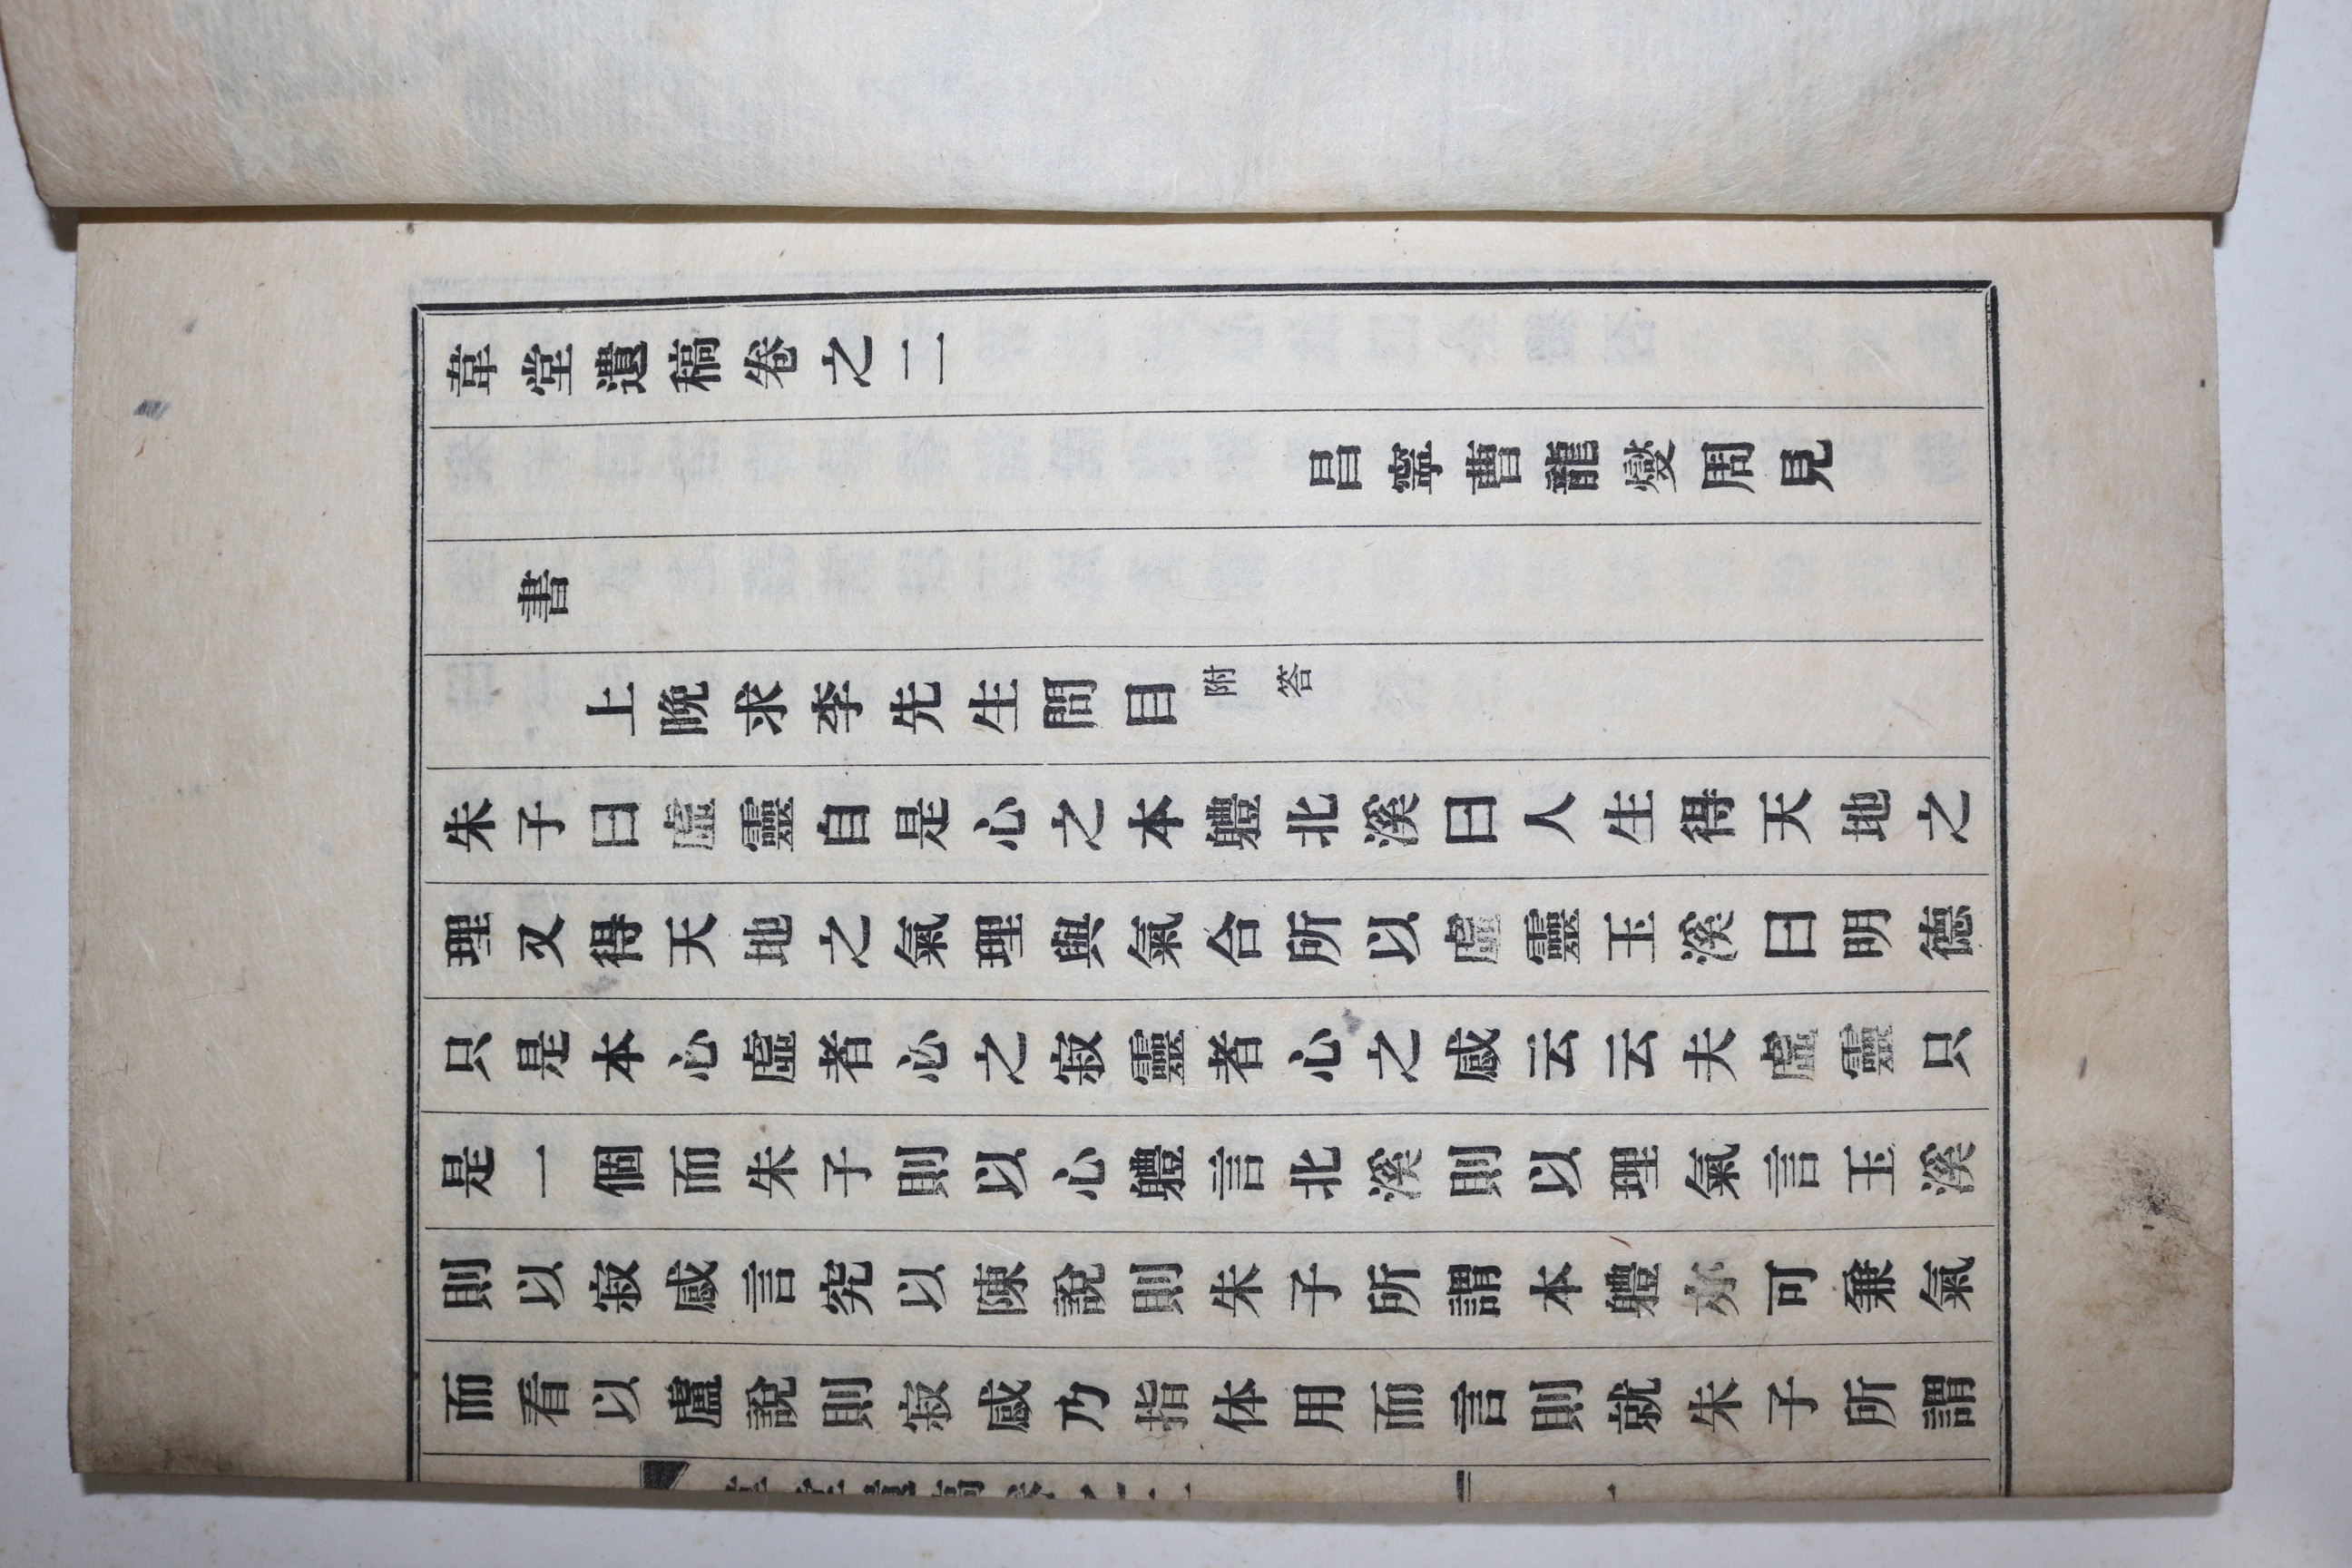 韋堂遺稿卷之二
昌寧曹龍燮周見
書
上晩求李先生問目附答
朱子曰虛靈自是心之本軆北溪曰人生得天地之
理又得天地之氣理與氣合所以虛靈玉溪曰明德
只是本心虛者心之寂靈者心之感云云夫虛靈只
是一個而朱子則以心軆言北溪則以理氣言玉溪
則以寂感言究以陳說則朱子所謂本軆亦可兼氣
而看以盧說則寂感乃指体用而言則就朱子所謂